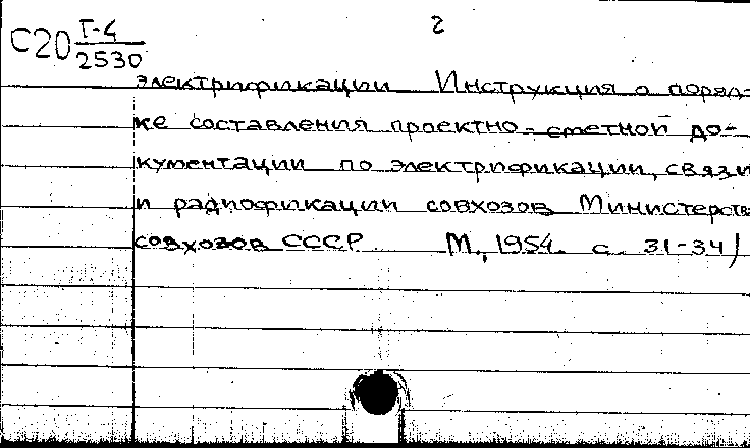 2
С20 Т-4
2530
электрификации Инструкция о поряд-
ке составления проектно-сметной до-
кументации по электрификации, связи
и радиофикации совхозов Министерств
совхозов СССР М., 1954. с. 31-34)